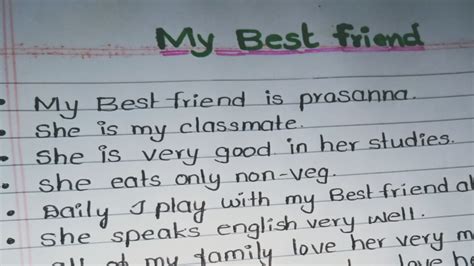 My Best friend
• My Best friend is prasanna.
• She is my classmate.
• She is very good in her studies.
• She eats only non-veg.
• Daily I play with my Best friend al
• She speaks english very well.
all of my family love her very m
love h